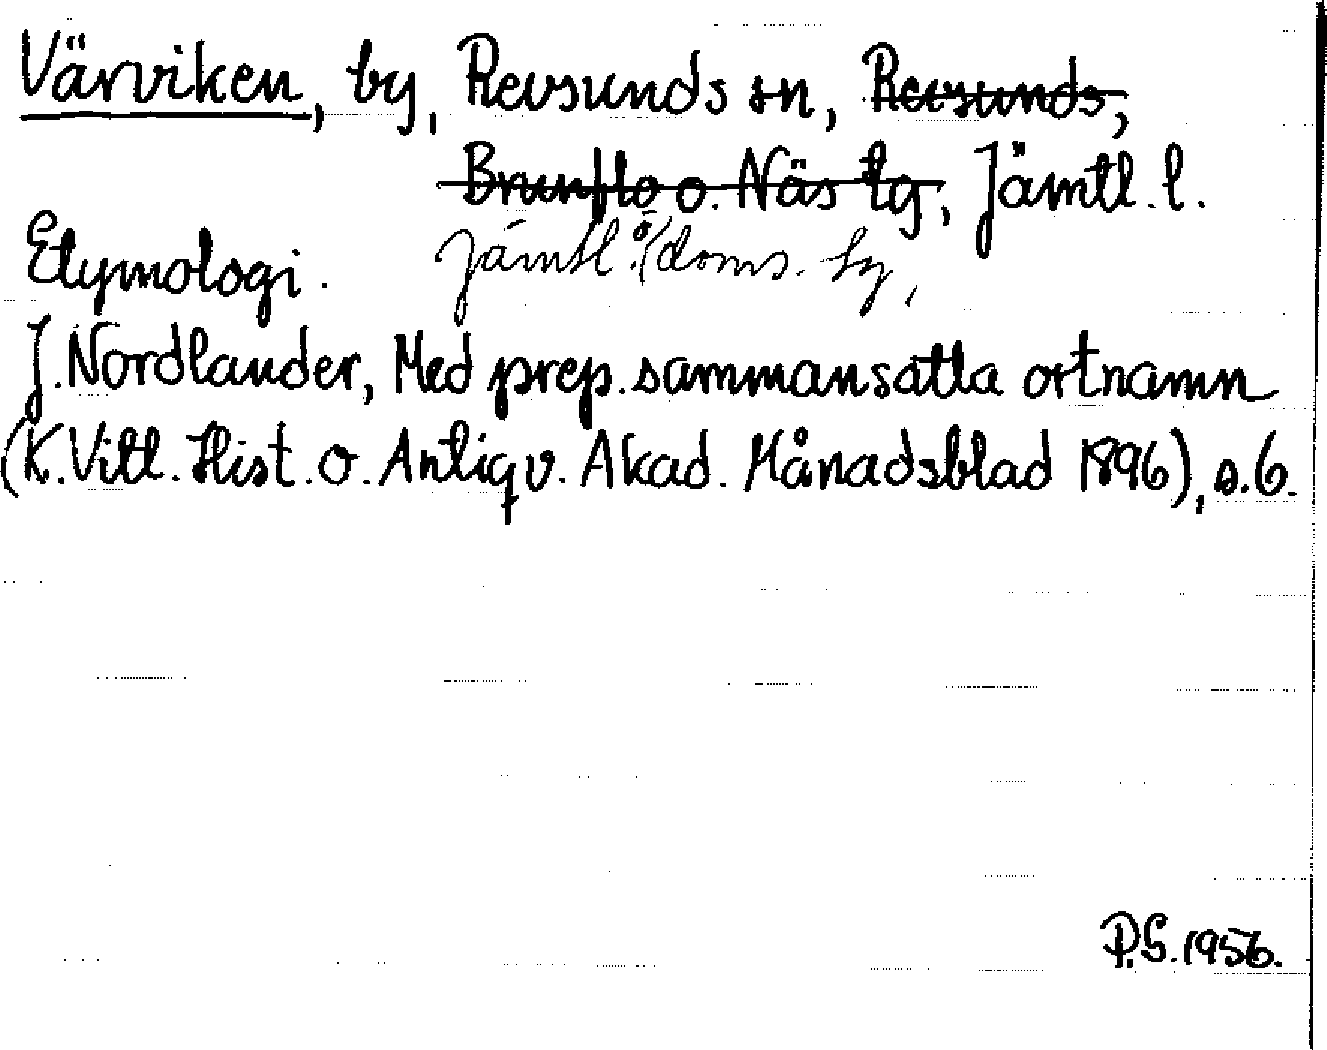 Värviken, by, Revsunds sn, Revsunds,
Brunflo o. Näs tg, Jämtl. l.
Etymologi. Jämtl. ö. doms. tg,
J. Nordlander, Med prep. sammansatta ortnamn
(K. Vitt. Hist. o. Antiqv. Akad. Månadsblad 1896), s. 6.
P.S. 1956.